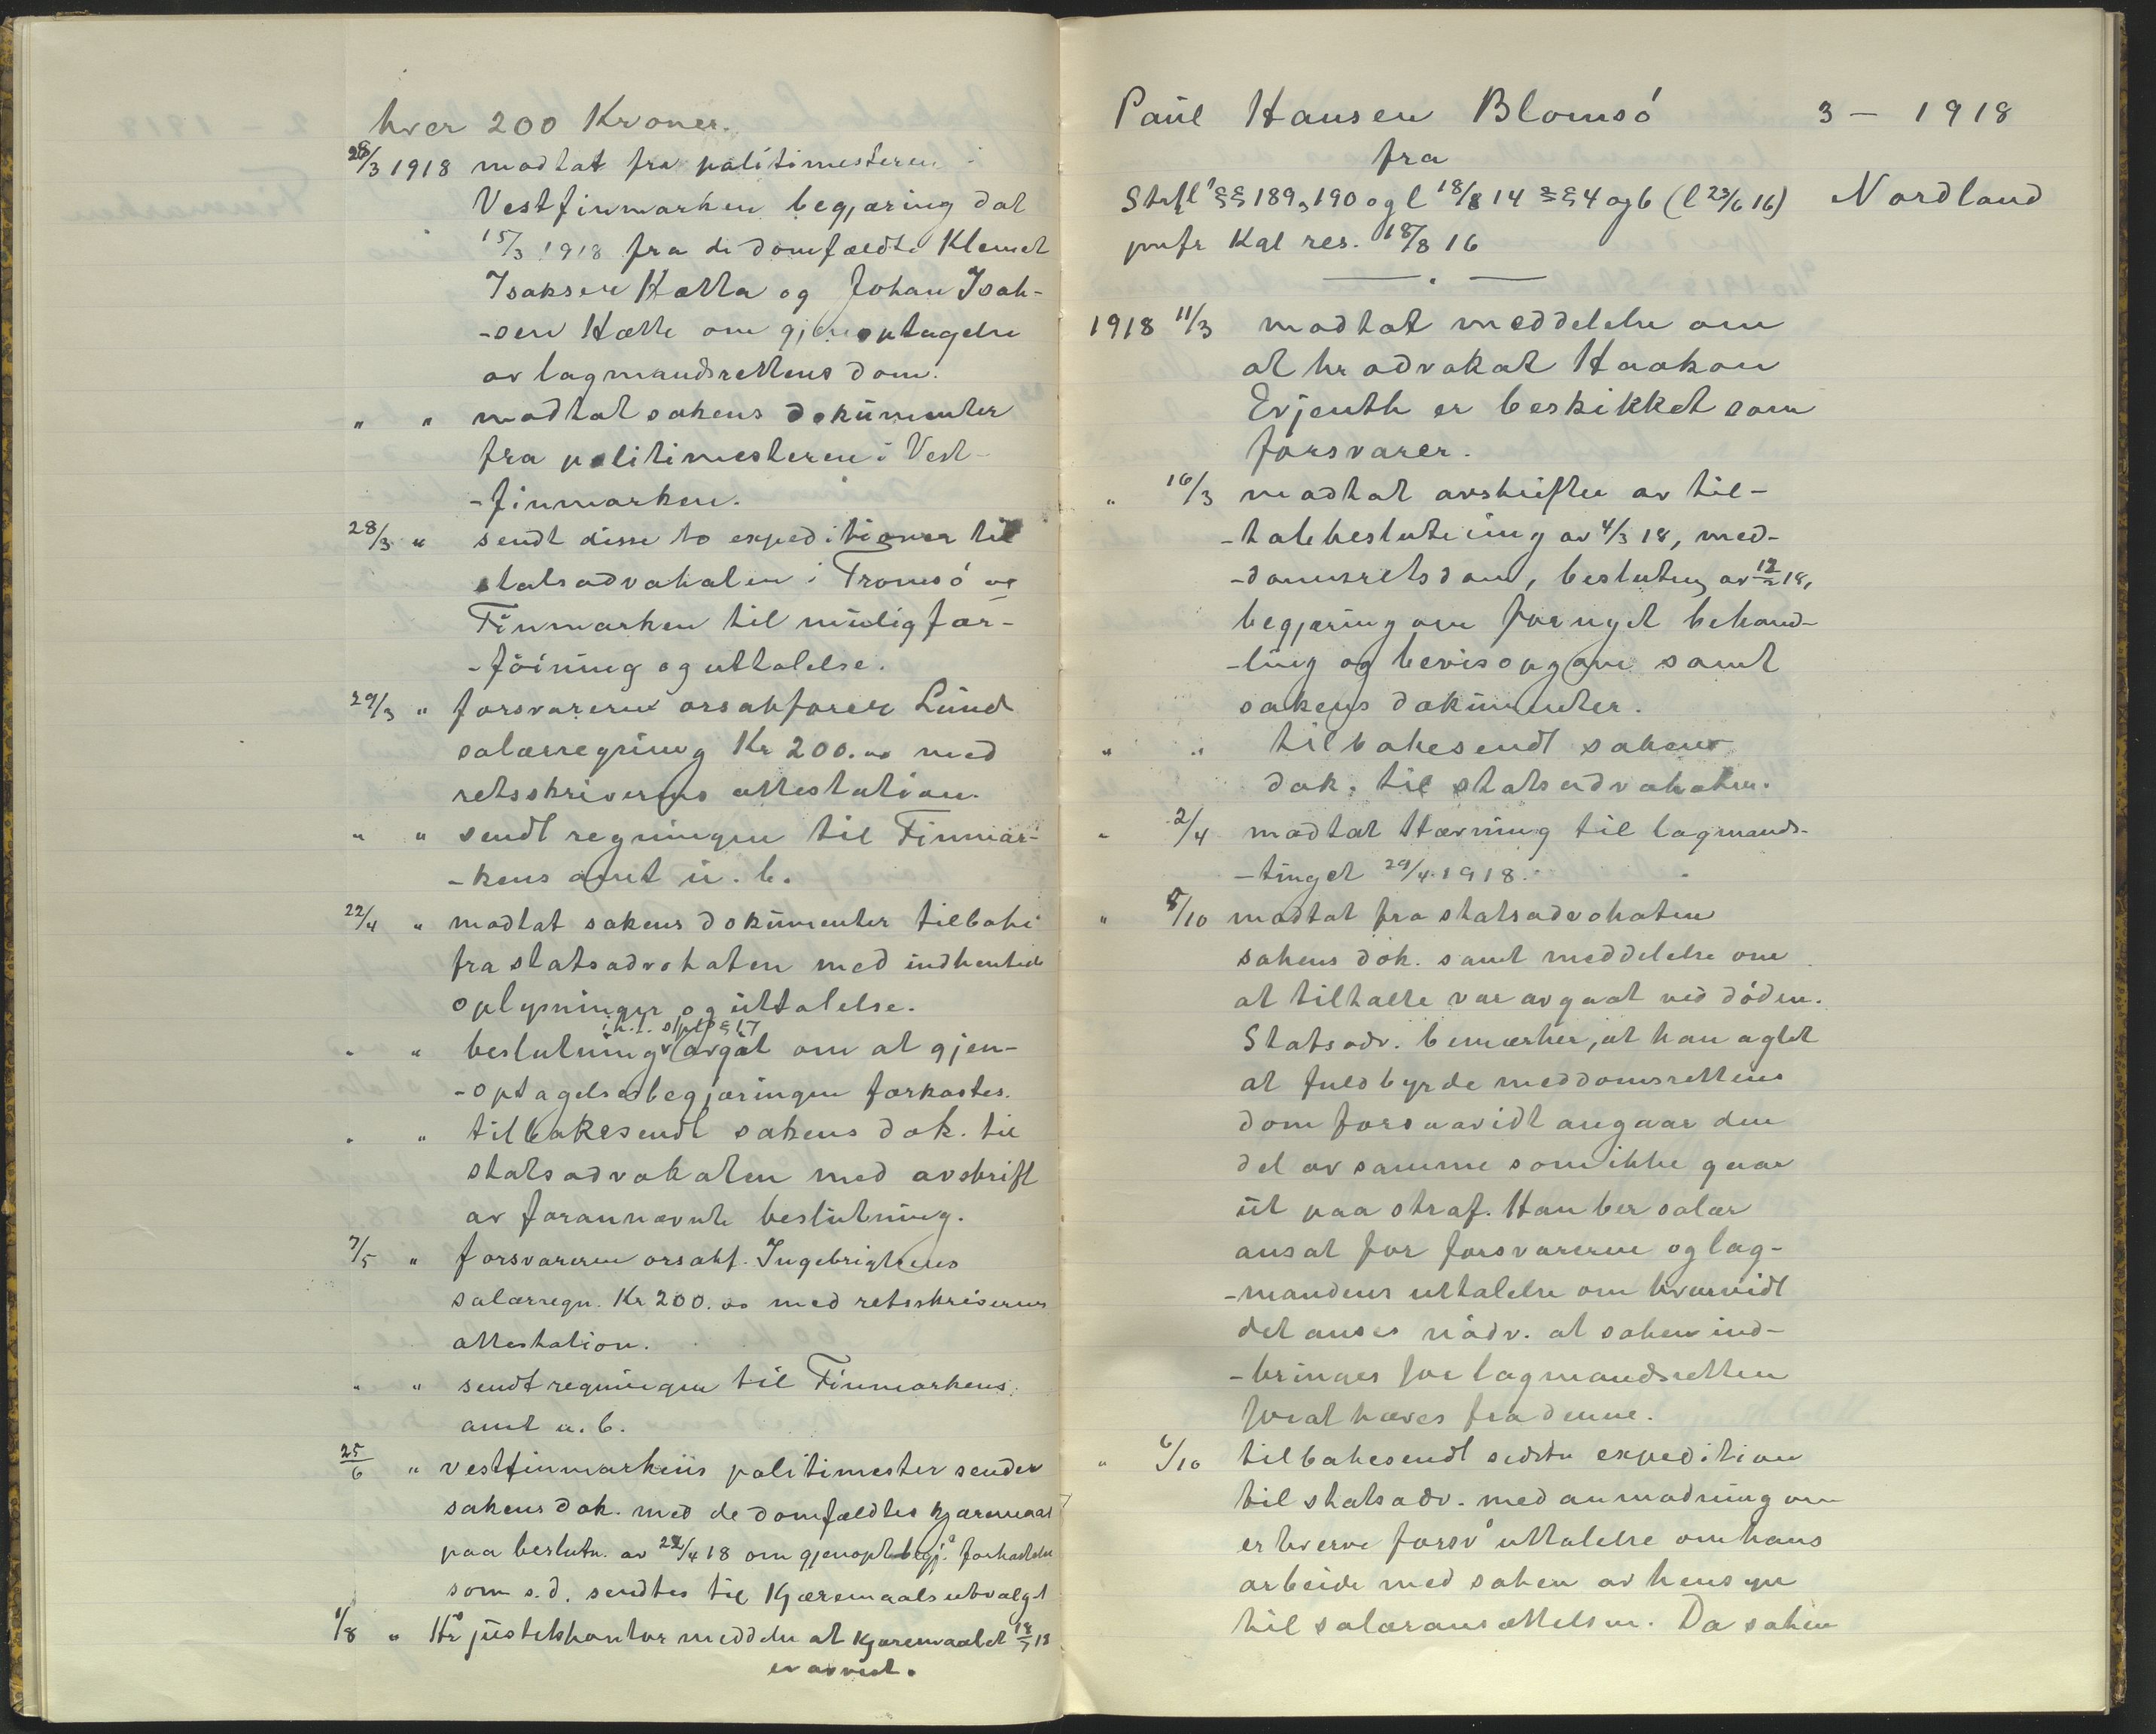 hver 200 Kroner.
28/3 1918 modtat fra politimesteren i
Vestfinmarken begjæring dat
15/3 1918 fra de domfældte Klemet
Isaksen Hætta og Johan Isak-
-sen Hætta om gjenoptagelse
av lagmandsrettens dom.
" " modtat sakens dokumenter
fra politimesteren i Vest-
-finmarken.
28/3 " sendt disse to expeditioner til
statsadvokaten i Tromsö og
Finmarken til mulig for-
-föining og uttalelse.
29/3 " forsvareren orsakforer Lund
salærregning Kr 200.00 med
retsskriverens attestation.
" " sendt regningen til Finmar-
-kens amt u. b.
22/4 " modtat sakens dokumenter tilbake
fra statsadvokaten med indhentede
oplysninger og uttalelse.
i h. t. stpl § 17
" " beslutning avgat om at gjen-
-optagelsesbegjæringen forkastes.
" " tilbakesendt sakens dok. til
statsadvokaten med avskrift
av forannævnte beslutning.
7/5 " forsvareren orsakf. Ingebrigtsens
salærregn. Kr 200.00 med retsskriverens
attestation.
" " sendt regningen til Finmarkens
amt u. b.
25/6 " vestfinmarkens politimester sender
sakens dok. med de domfældtes kjæremaal
paa beslutn. av 22/4 18 om gjenopt.begj. forkastelse
som s. d. sendtes til Kjæremaalsutvalget
1/8 " Hr justitskontor meddeler at kjæremaalet 18/7 18
er avvist.
Paul Hansen Blomsö 3 - 1918
fra
Strfl §§ 189, 190 og l 18/8 14 §§ 4 og 6 (l 23/6 16) Nordland
jvnfr Kgl res. 18/8 16
1918 11/3 modtat meddelelse om
at hr advokat Haakon
Evjenth er beskikket som
forsvarer.
" 16/3 modtat avskrifter av til-
-talebeslutning av 4/3 18, med-
-domsretsdom, beslutn. av 12/2 18,
begjæring om fornyet behand-
-ling og bevisopgave samt
sakens dokumenter.
" " tilbakesendt sakens
dok. til statsadvokaten.
" 2/4 modtat stævning til lagmands-
-tinget 29/4 1918.
" 5/10 modtat fra statsadvokaten
sakens dok. samt meddelelse om
at tiltalte var avgaat ved döden.
Statsadv. bemærker, at han agtet
at fuldbyrde meddomsrettens
dom forsaavidt angaar den
del av samme som ikke gaar
ut paa straf. Han ber salær
ansat for forsvareren og lag-
-mandens uttalelse om hvorvidt
det anses nödv. at saken ind-
-bringes for lagmandsretten
for at hæves fra denne.
" 6/10 tilbakesendt sidste expedition
til statsadv. med anmodning om
erhverve forsv. uttalelse om hans
arbeide med saken av hensyn
til salæransættelsen. Da saken